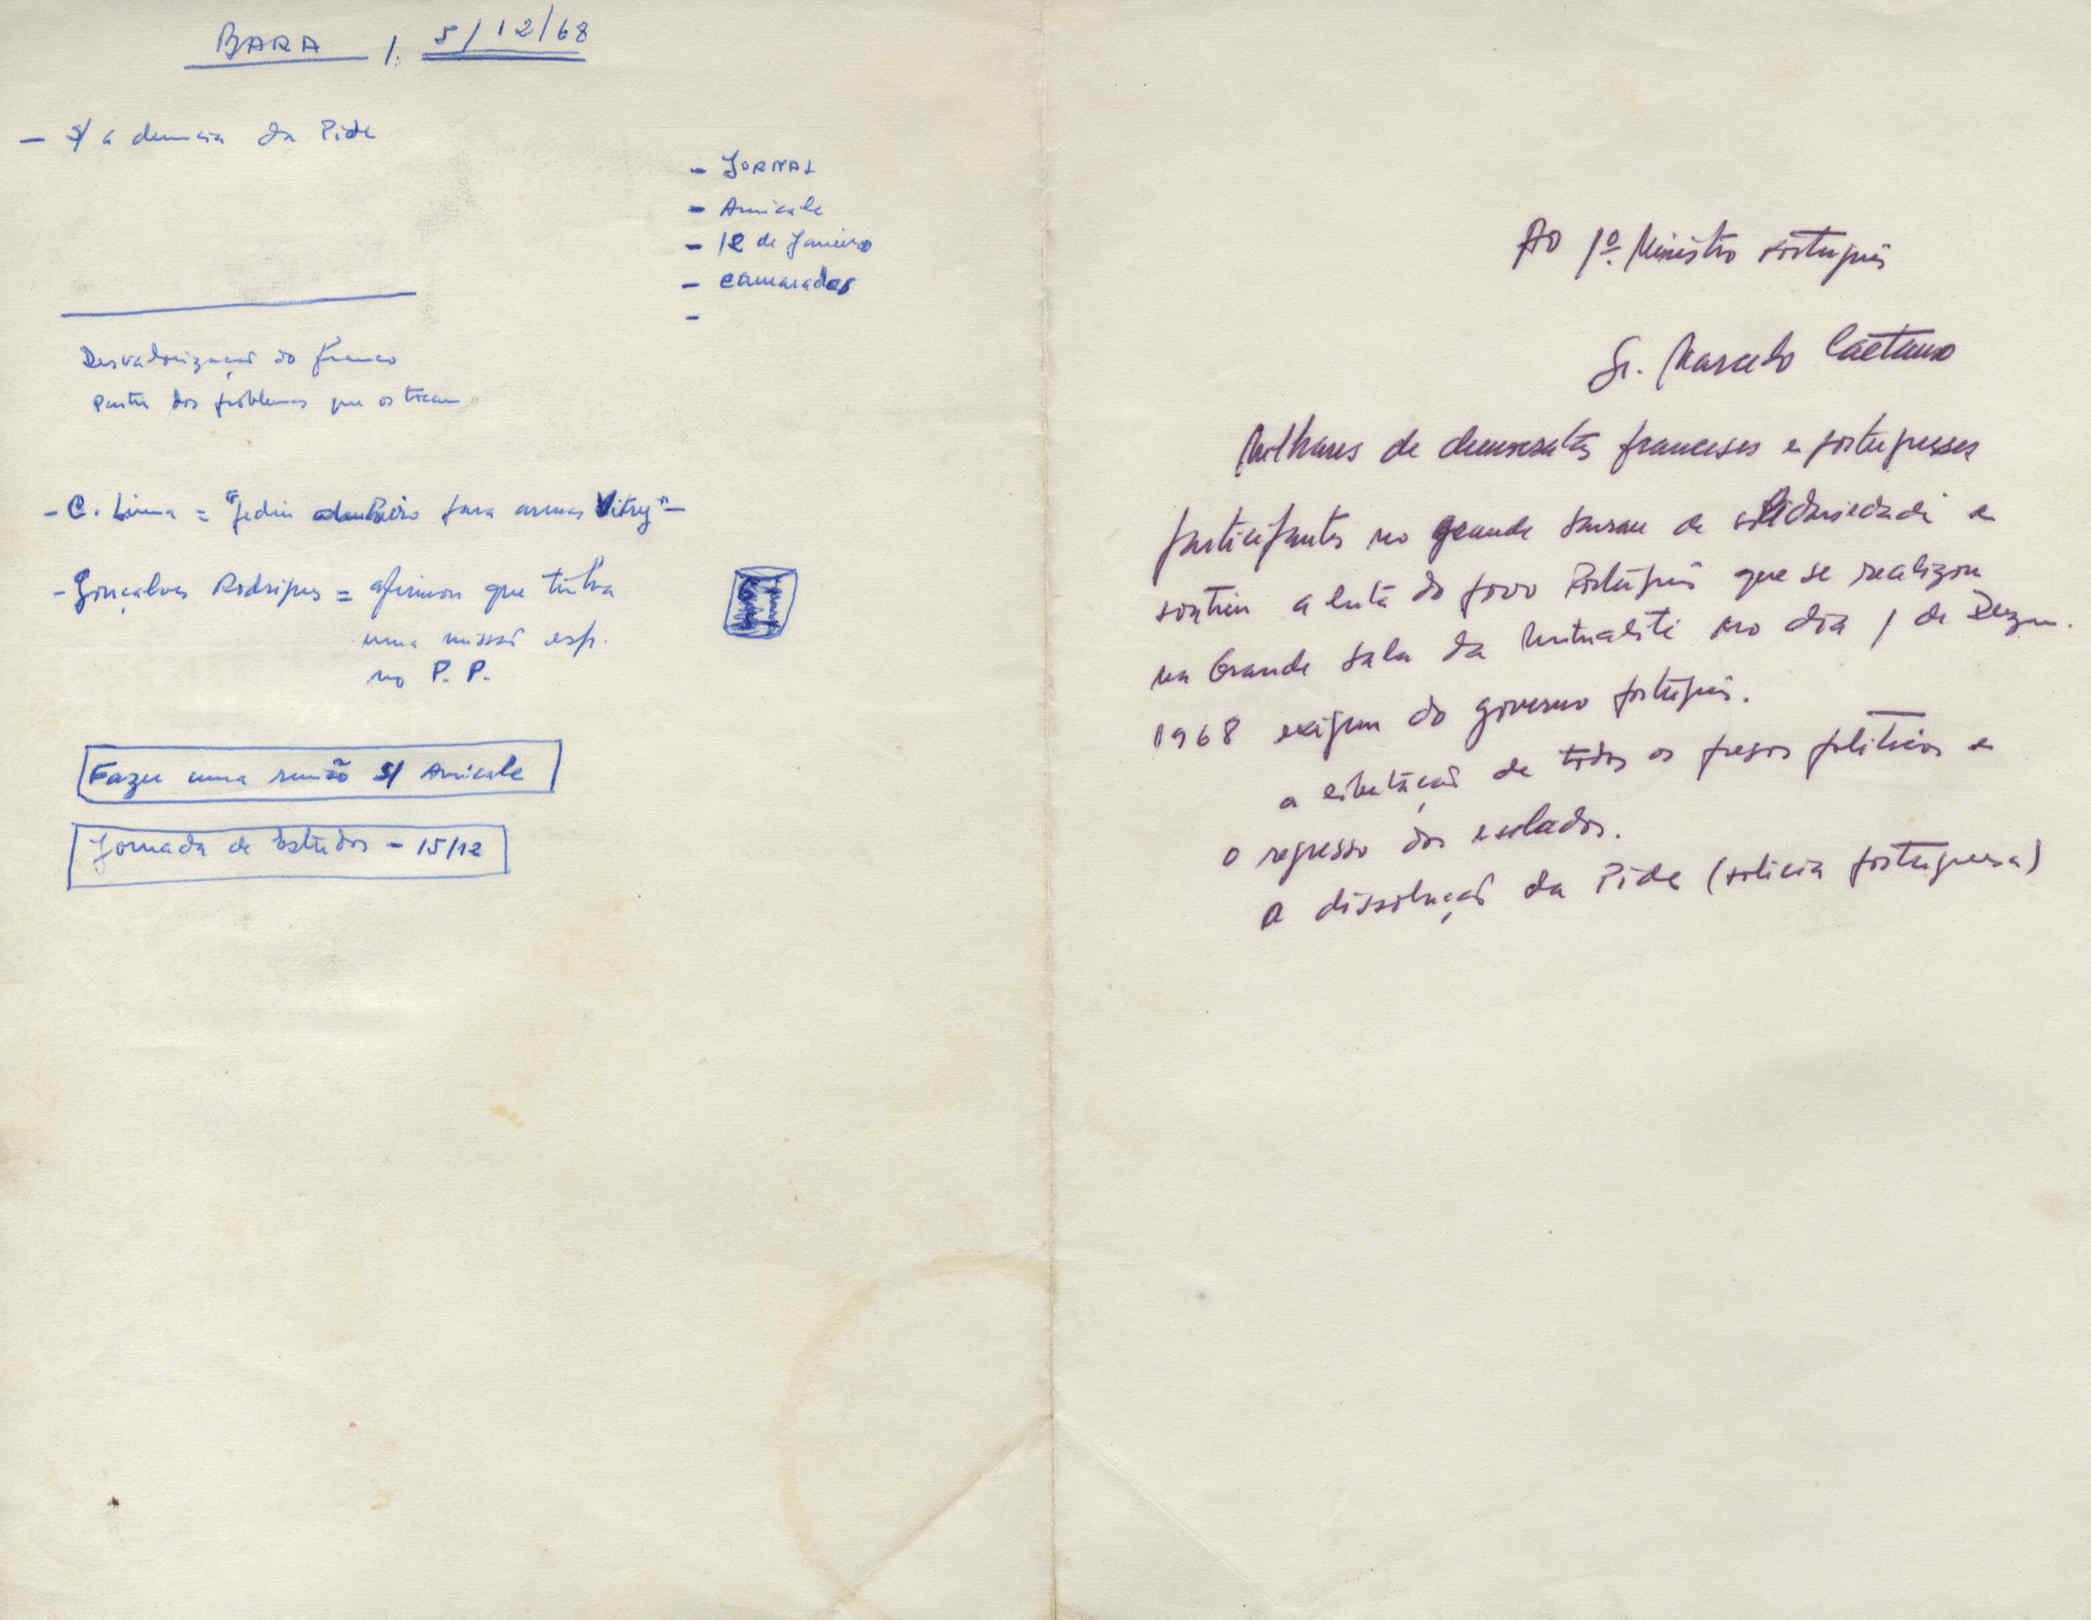 BARA /. 5/12/68
- S/ a denuncia da Pide
- JORNAL
- Amicale
- 12 de Janeiro
- camaradas
-
Desvalorização do franco
partir dos problemas que os tocam
- C. Lima = "pediu dinheiro para armas Vitry" -
- Gonçalves Rodrigues = afirmou que tinha
uma missão esp.
no P. P.
Fazer uma reunião S/ Amicale
Jornada de Estudos - 15/12
Ao 1º. Ministro português
Sr. Marcelo Caetano
Milhares de democratas franceses e portugueses
participantes no grande sarau de solidariedade e
contra a luta do povo Português que se realizou
na Grande sala da Mutualité no dia 1 de Dezem.
1968 exigem do governo português.
a libertação de todos os presos políticos e
o regresso dos exilados.
A dissolução da Pide (polícia portuguesa)